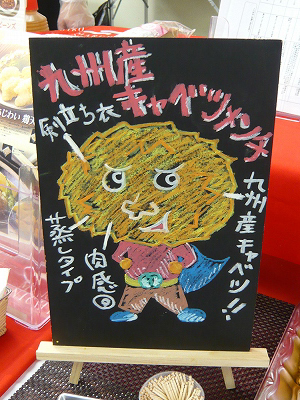 九州産
キャベツメンチ
剣立ち衣
九州産キャベツ!!
肉感
蒸しタイプ